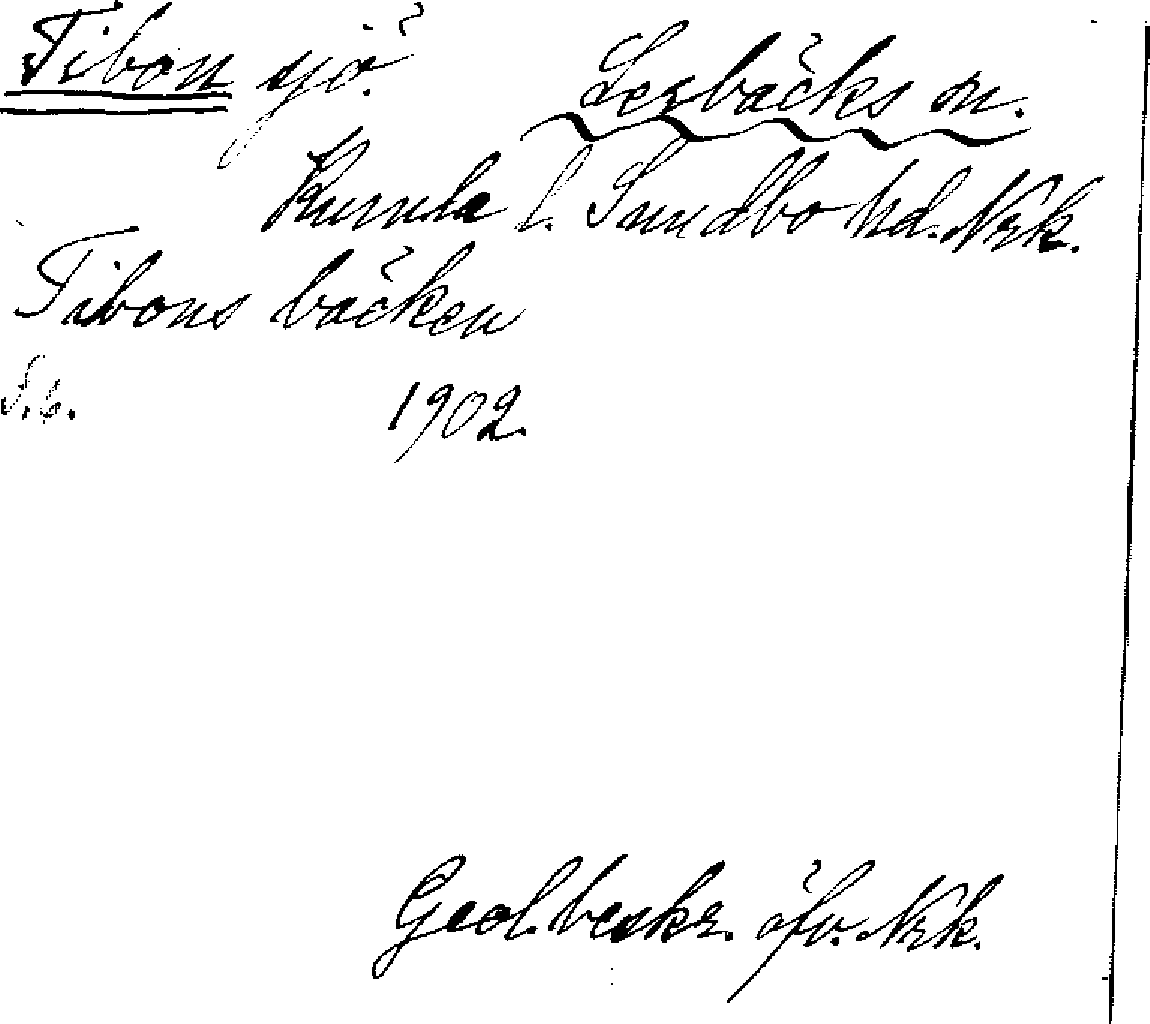 Tibon sjö.
Lerbäcks sn.
Kumla l. Sundbo hd. Nrk.
Tibons bäcken
S. 6.
1902.
Geol. beskr. öfv. Nrk.